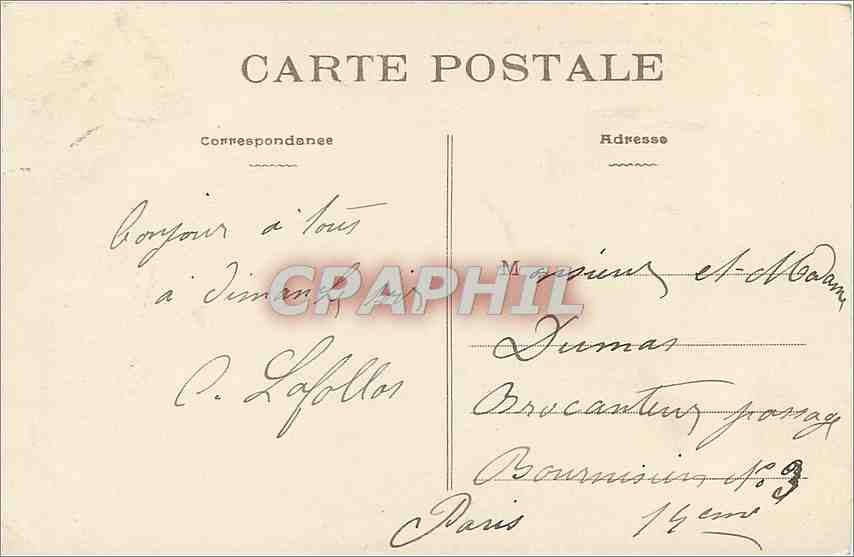 CARTE POSTALE
Correspondance
Adresse
bonjour à tous
à dimanche soir
Monsieur et Madame
Dumas
Brocanteur passage
Bournisien No 3
Paris 14eme
CPARPHIL